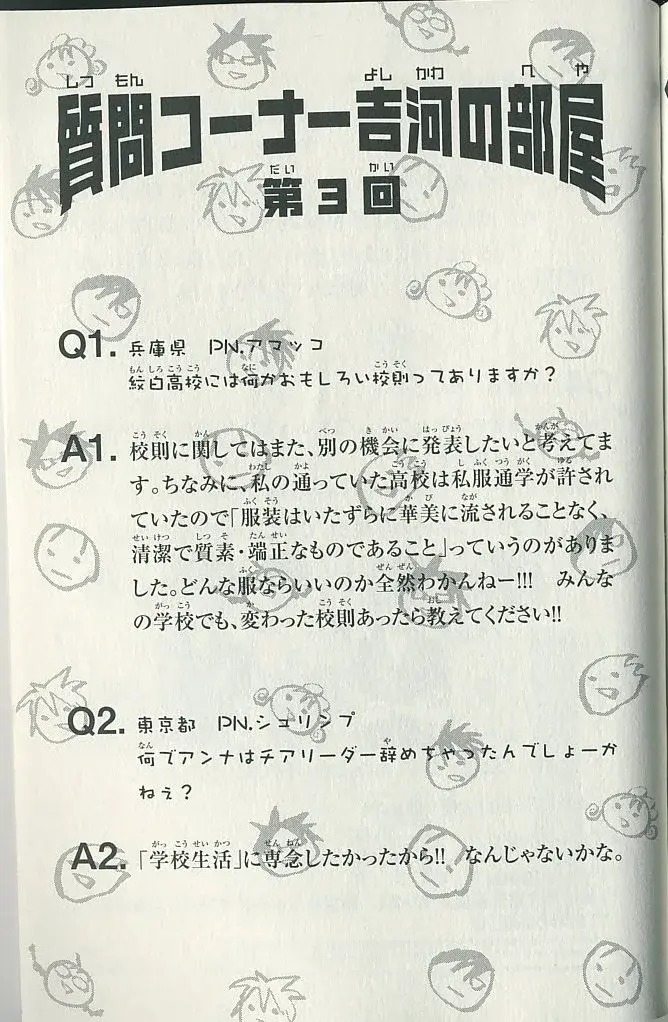 質問コーナー吉河の部屋
第3回
Q1. 兵庫県 PN.アマッコ
紋白高校には何かおもしろい校則ってありますか？
A1. 校則に関してはまた、別の機会に発表したいと考えてま
す。ちなみに、私の通っていた高校は私服通学が許され
ていたので「服装はいたずらに華美に流されることなく、
清潔で質素・端正なものであること」っていうのがありま
した。どんな服ならいいのか全然わかんねー!!! みんな
の学校でも、変わった校則あったら教えてください!!
Q2. 東京都 PN.シュリンプ
何でアンナはチアリーダー辞めちゃったんでしょーか
ねぇ？
A2. 「学校生活」に専念したかったから!! なんじゃないかな。